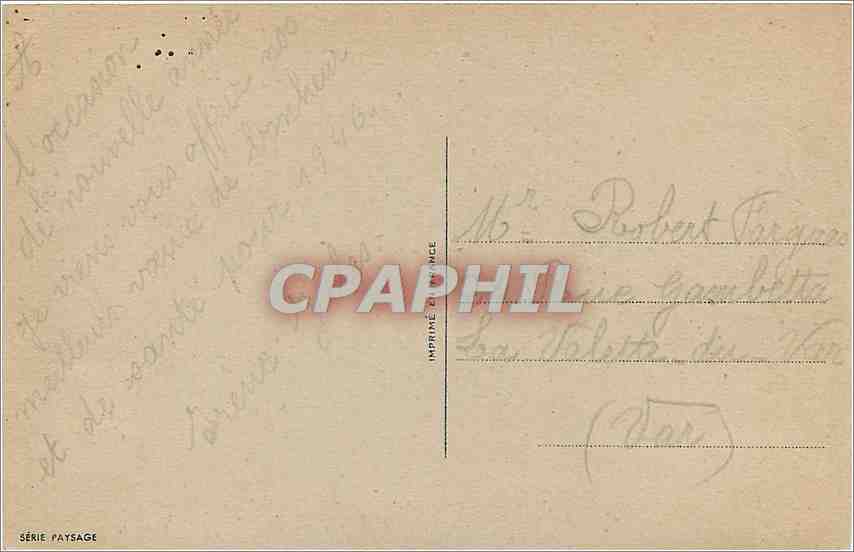 A
l'occasion
de nouvelle année
je viens vous offrir nos
meilleurs vœux de bonheur
et de santé pour 1946.
Mr Robert Fargues
Rue Gambetta
La Valette du Var
(Var)
IMPRIMÉ EN FRANCE
CPARAPHIL
SÉRIE PAYSAGE